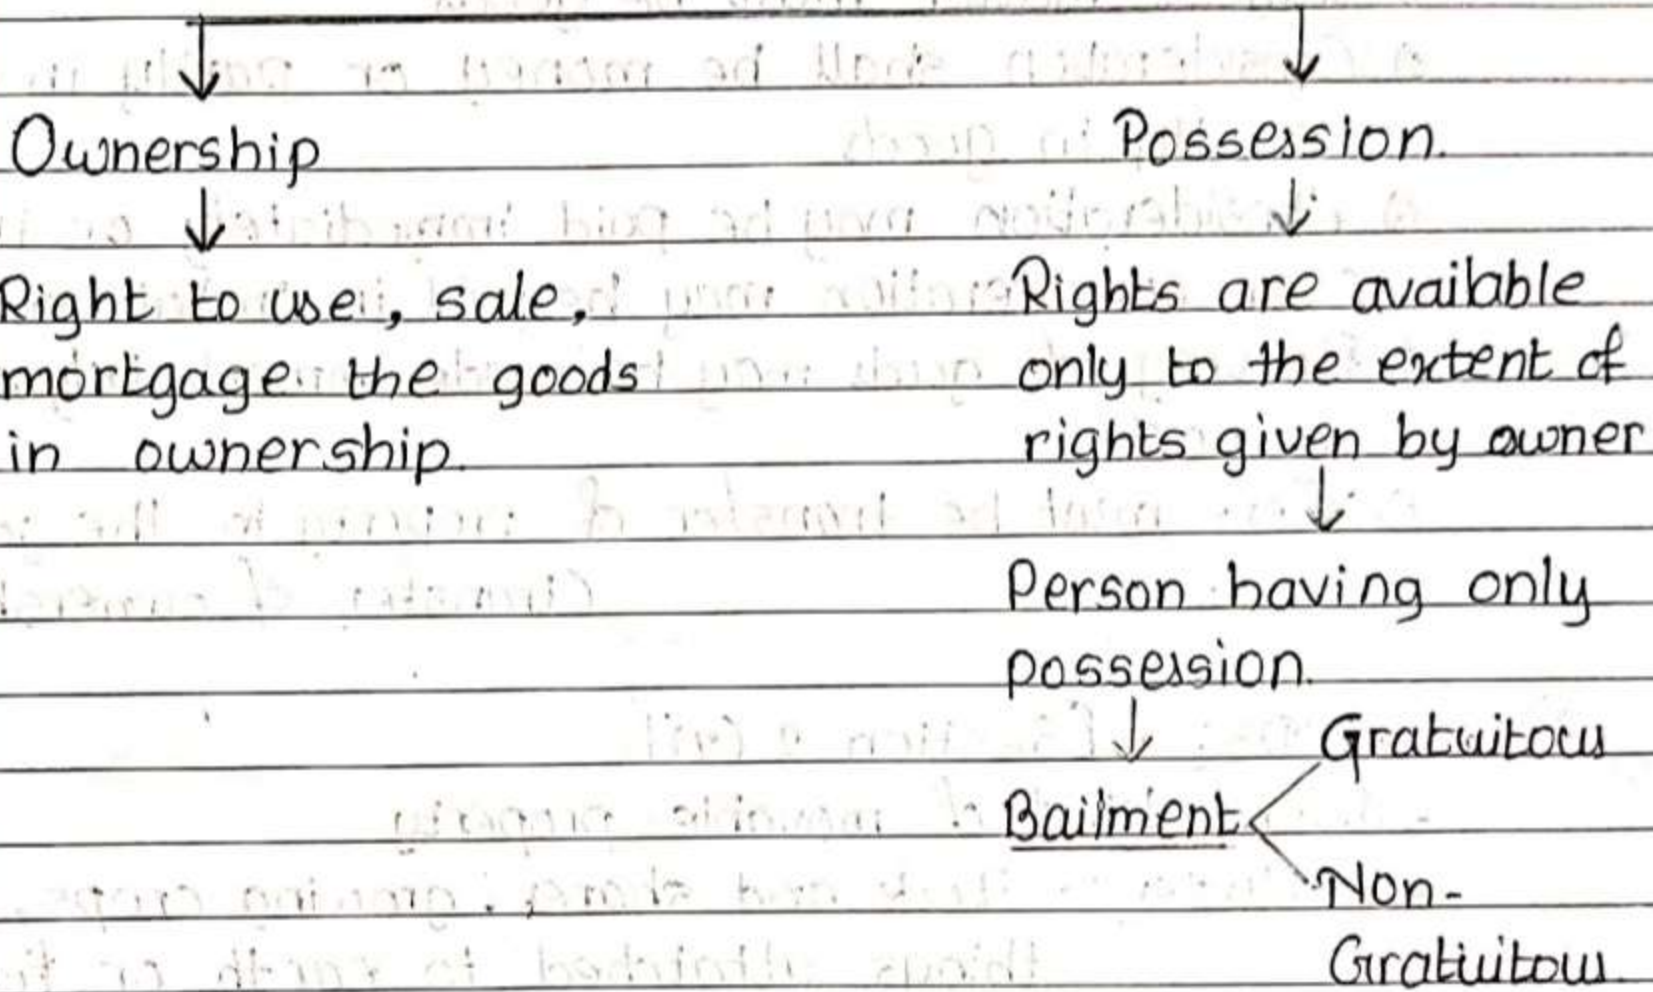 Ownership
Possession.
Right to use, sale,
mortgage the goods
in ownership.
Rights are available
only to the extent of
rights given by owner
Person having only
possession.
Bailment
Gratuitous
Non-
Gratuitous